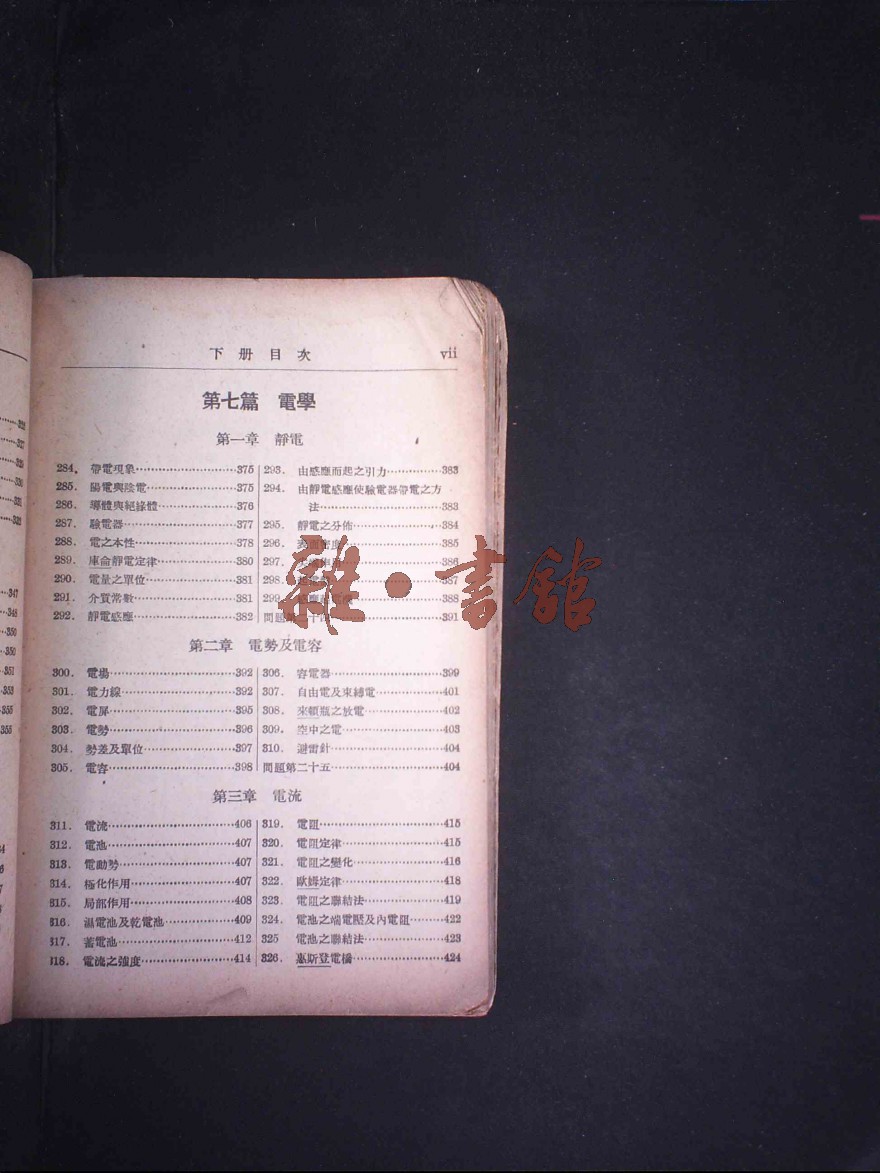 下册目次 vii
第七篇 電學
第一章 靜電
284. 帶電現象 375
285. 陽電與陰電 375
286. 導體與絕緣體 376
287. 驗電器 377
288. 電之本性 378
289. 庫侖靜電定律 380
290. 電量之單位 381
291. 介質常數 381
292. 靜電感應 382
293. 由感應而起之引力 383
294. 由靜電感應使驗電器帶電之方
法 383
295. 靜電之分佈 384
296. 385
297. 386
298. 387
299. 388
問題第二十四 391
雜·書館
第二章 電勢及電容
300. 電場 392
301. 電力線 392
302. 電屏 395
303. 電勢 396
304. 勢差及單位 397
305. 電容 398
306. 容電器 399
307. 自由電及束縛電 401
308. 來頓瓶之放電 402
309. 空中之電 403
310. 避雷針 404
問題第二十五 404
第三章 電流
311. 電流 406
312. 電池 407
313. 電動勢 407
314. 極化作用 407
315. 局部作用 408
316. 濕電池及乾電池 409
317. 蓄電池 412
318. 電流之強度 414
319. 電阻 415
320. 電阻定律 415
321. 電阻之變化 416
322. 歐姆定律 418
323. 電阻之聯結法 419
324. 電池之端電壓及內電阻 422
325 電池之聯結法 423
326. 惠斯登電橋 424
347
348
350
350
351
353
355
355